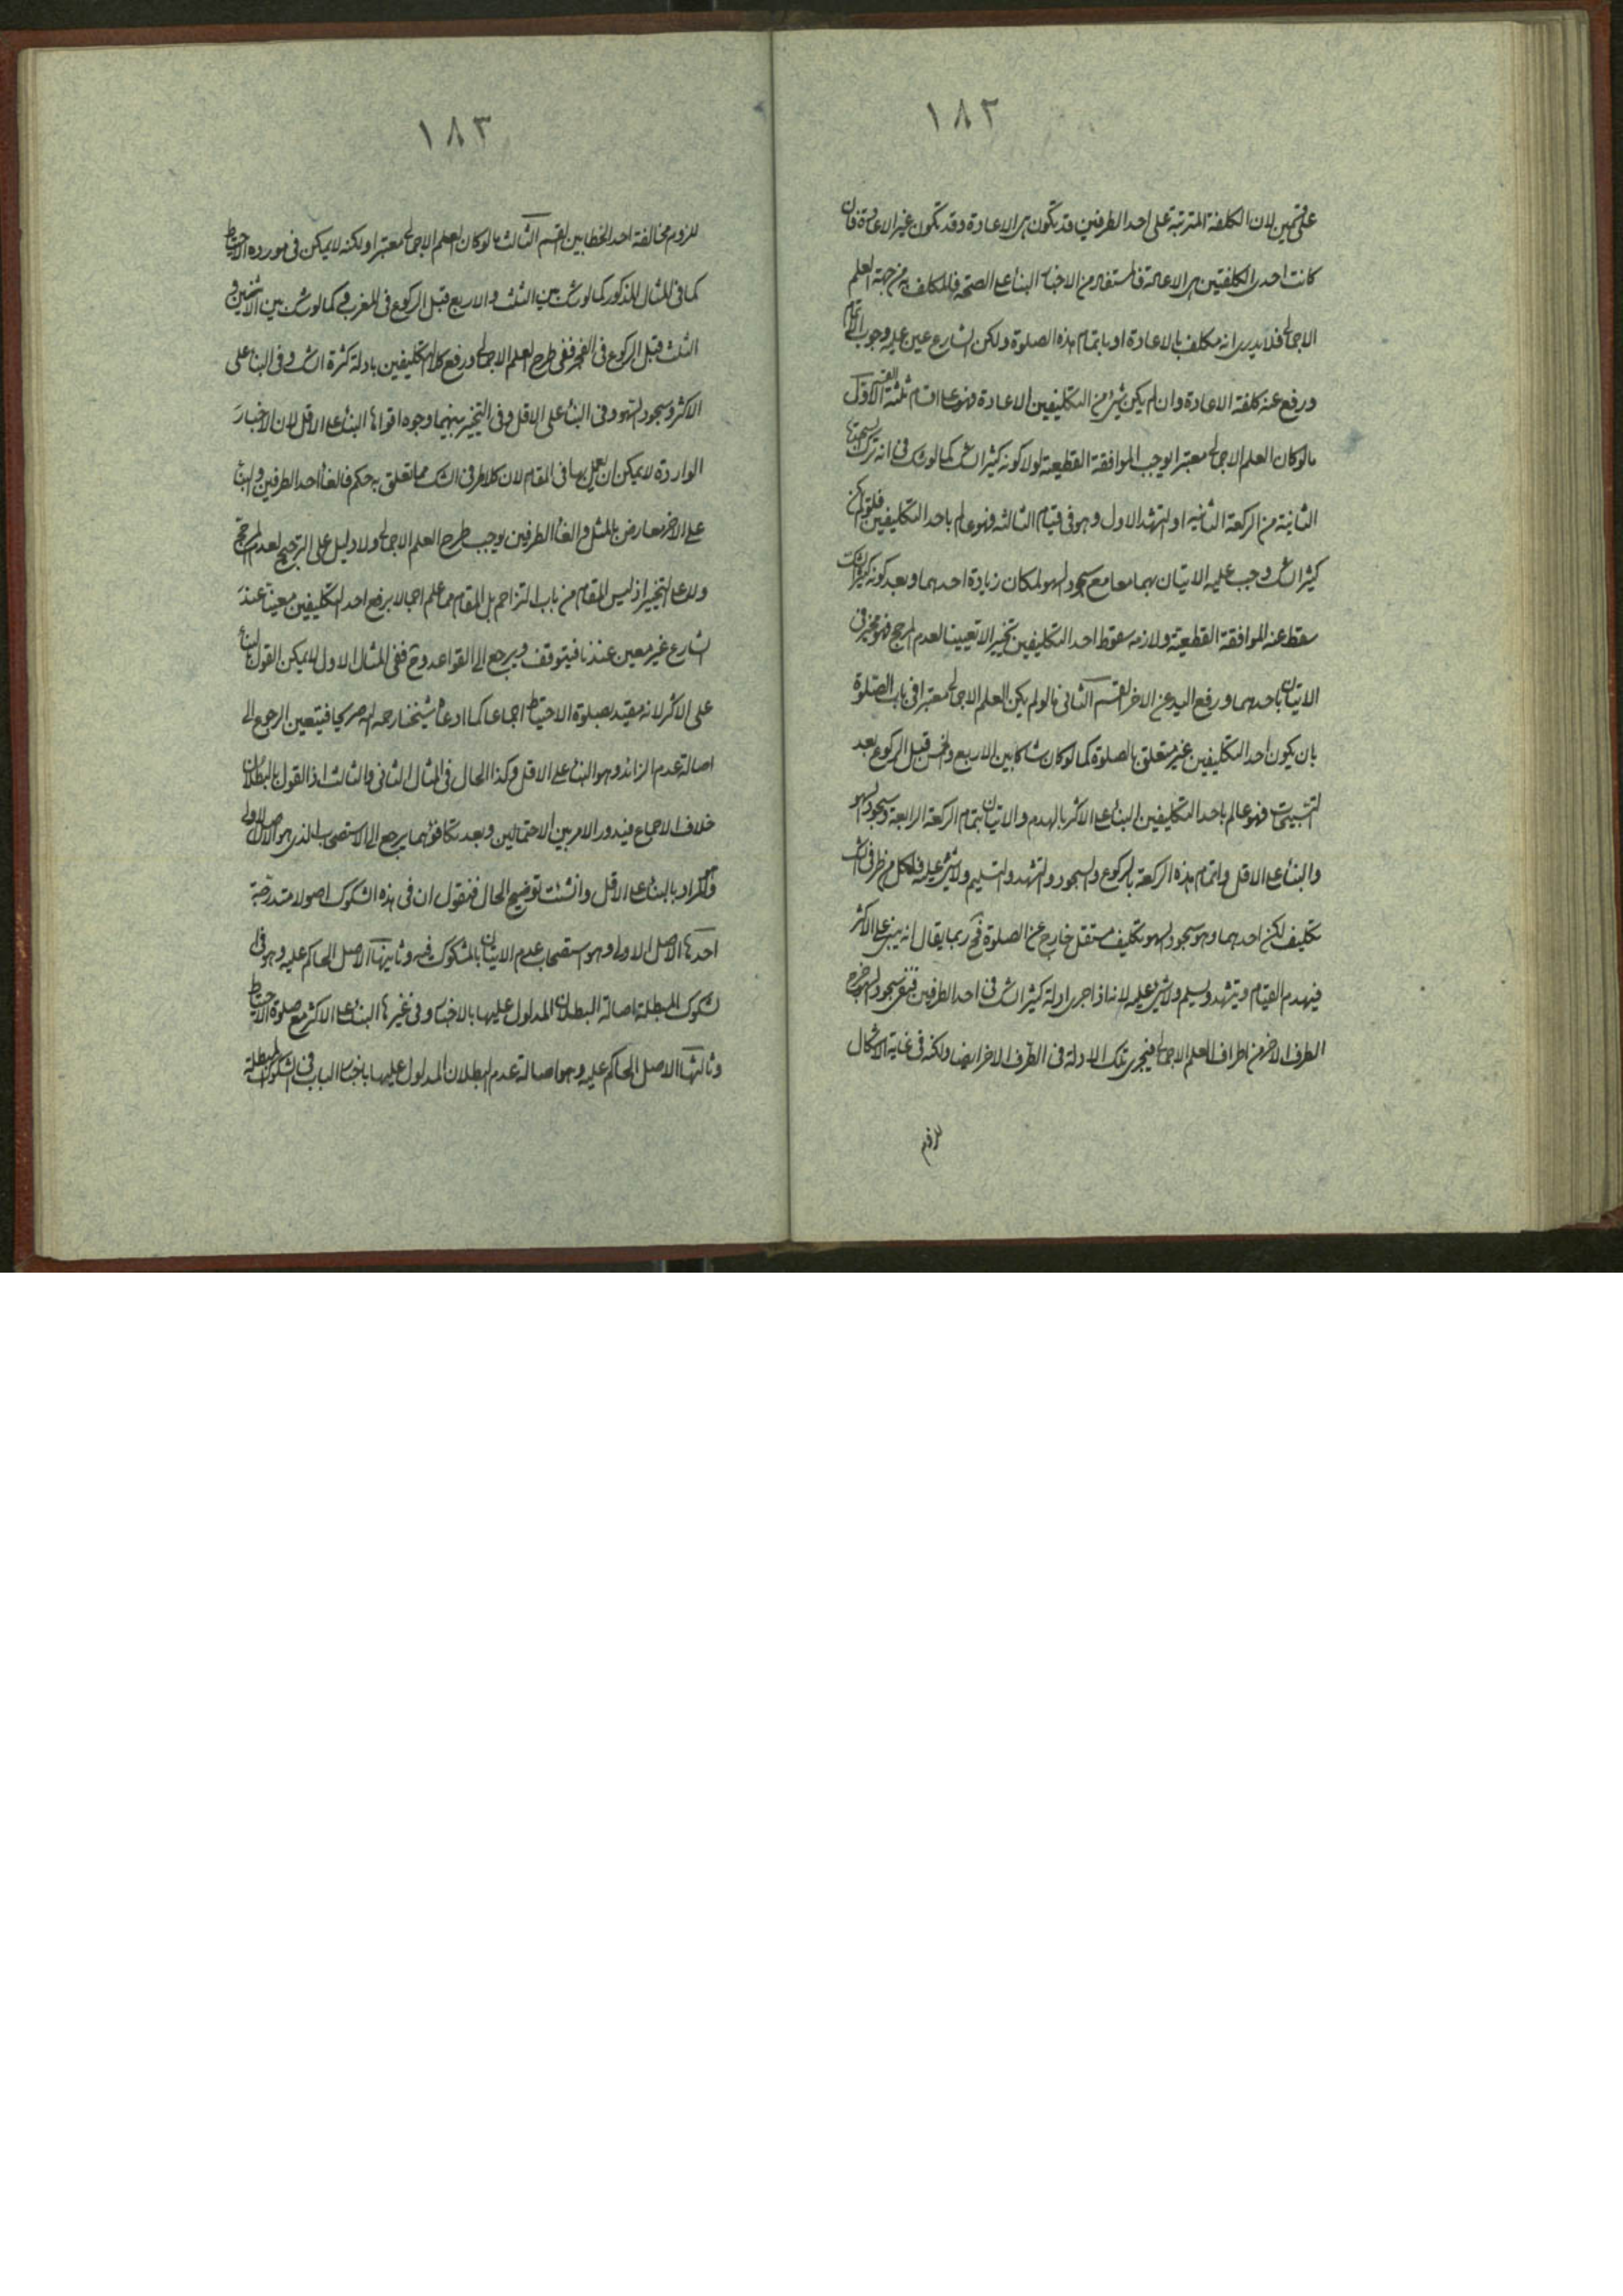 ١٨٢
على قسمين لان الكلفة المترتبة على احد الطرفين قد يكون هى الاعادة وقد تكون غير الاعادة فان
كانت احدى الكلفتين هى الاعادة فالمستفاد من الاخبار البناء على الصحة فالمكلف من جهة العلم
الاجمالى فلا يدرى انه مكلف بالاعادة او باتمام هذه الصلوة ولكن الشارع عين عليه وجوب الاتمام
ورفع عنه كلفة الاعادة وان لم يكن شئ من التكليفين الاعادة فهو على اقسام ثلثة القسم الاول
ما لو كان العلم الاجمالى معتبرا يوجب الموافقة القطعية لولا كونه كثير الشك كما لو شك فى انه ترك السجدة
الثانية من الركعة الثانية او التشهد الاول وهو فى قيام الثالثة فهو عالم باحد التكليفين فلو لم يكن
كثير الشك وجب عليه الاتيان بهما معا مع سجود السهو لمكان زيادة احدهما وبعد كونه كثير الشك
سقط عنه الموافقة القطعية ولازمه سقوط احد التكليفين تخييرا لا تعيينا لعدم المرجح فهو مخير فى
الاتيان باحدهما ورفع اليد عن الاخر القسم الثانى ما لو لم يكن العلم الاجمالى معتبرا فى باب الصلوة
بان يكون احد التكليفين غير متعلق بالصلوة كما لو كان شاكا بين الاربع والخمس قبل الركوع بعد
التسبيحات فهو عالم باحد التكليفين البناء على الاكثر بالهدم والاتيان بتمام الركعة الرابعة وسجود السهو
والبناء على الاقل واتمام هذه الركعة بالركوع والسجود والتشهد والتسليم ولا شئ عليه فلكل من طرفى الشك
تكليف لكن احدهما وهو سجود السهو تكليف مستقل خارج عن الصلوة فح ربما يقال انه يبنى على الاكثر
فيهدم القيام ويتشهد ويسلم ولا شئ عليه لانه اذا جرى ادلة كثير الشك فى احد الطرفين فنفى سجود السهو خرج
الطرف الاخر من اطراف العلم الاجمالى فيجرى تلك الادلة فى الطرف الاخر ايضا ولكنه فى غاية الاشكال
للزوم
١٨٣
للزوم مخالفة احد الخطابين القسم الثالث ما لو كان العلم الاجمالى معتبرا ولكنه لا يمكن فى مورده الاحتياط
كما فى المثال المذكور كما لو شك بين الثلث والاربع قبل الركوع فى المغرب وكما لو شك بين الاثنين و
الثلث قبل الركوع فى الفجر ففى طرح العلم الاجمالى ورفع كلا التكليفين بادلة كثرة الشك وفى البناء على
الاكثر وسجود السهو وفى البناء على الاقل وفى التخيير بينهما وجوه اقواها البناء على الاقل لان الاخبار
الواردة لا يمكن ان يعمل بها فى المقام لان كلا طرفى الشك مما تعلق به حكم فالغاء احد الطرفين والبناء
على الاخر معارض بالمثل والغاء الطرفين يوجب طرح العلم الاجمالى ولا دليل على الترجيح لعدم المرجح
ولا على التخيير اذ ليس المقام من باب التزاحم بل المقام مما علم اجمالا برفع احد التكليفين معينا عند
الشارع غير معين عندنا فيتوقف ويرجع الى القواعد وح ففى المثال الاول لا يمكن القول بالبناء
على الاكثر لانه مقيد بصلوة الاحتياط اجماعا كما ادعاه شيخنا رحمه الله صريحا فيتعين الرجوع الى
اصالة عدم الزائد وهو البناء على الاقل وكذا الحال فى المثال الثانى والثالث اذ القول بالبطلان
خلاف الاجماع فيدور الامر بين الاحتمالين وبعد تكافؤهما يرجع الى الاستصحاب الذى هو الاصل الاولى
والمراد بالبناء على الاقل وان شئت توضيح الحال فنقول ان فى هذه الشكوك اصولا متدرجة
احدها الاصل الاولى وهو استصحاب عدم الاتيان بالمشكوك فيه وثانيها الاصل الحاكم عليه وهو فى
الشكوك المبطلة اصالة البطلان المدلول عليها بالاخبار وفى غيرها البناء على الاكثر مع صلوة الاحتياط
وثالثها الاصل الحاكم عليه وهو اصالة عدم البطلان المدلول عليها باخبار الباب فى الشكوك المبطلة